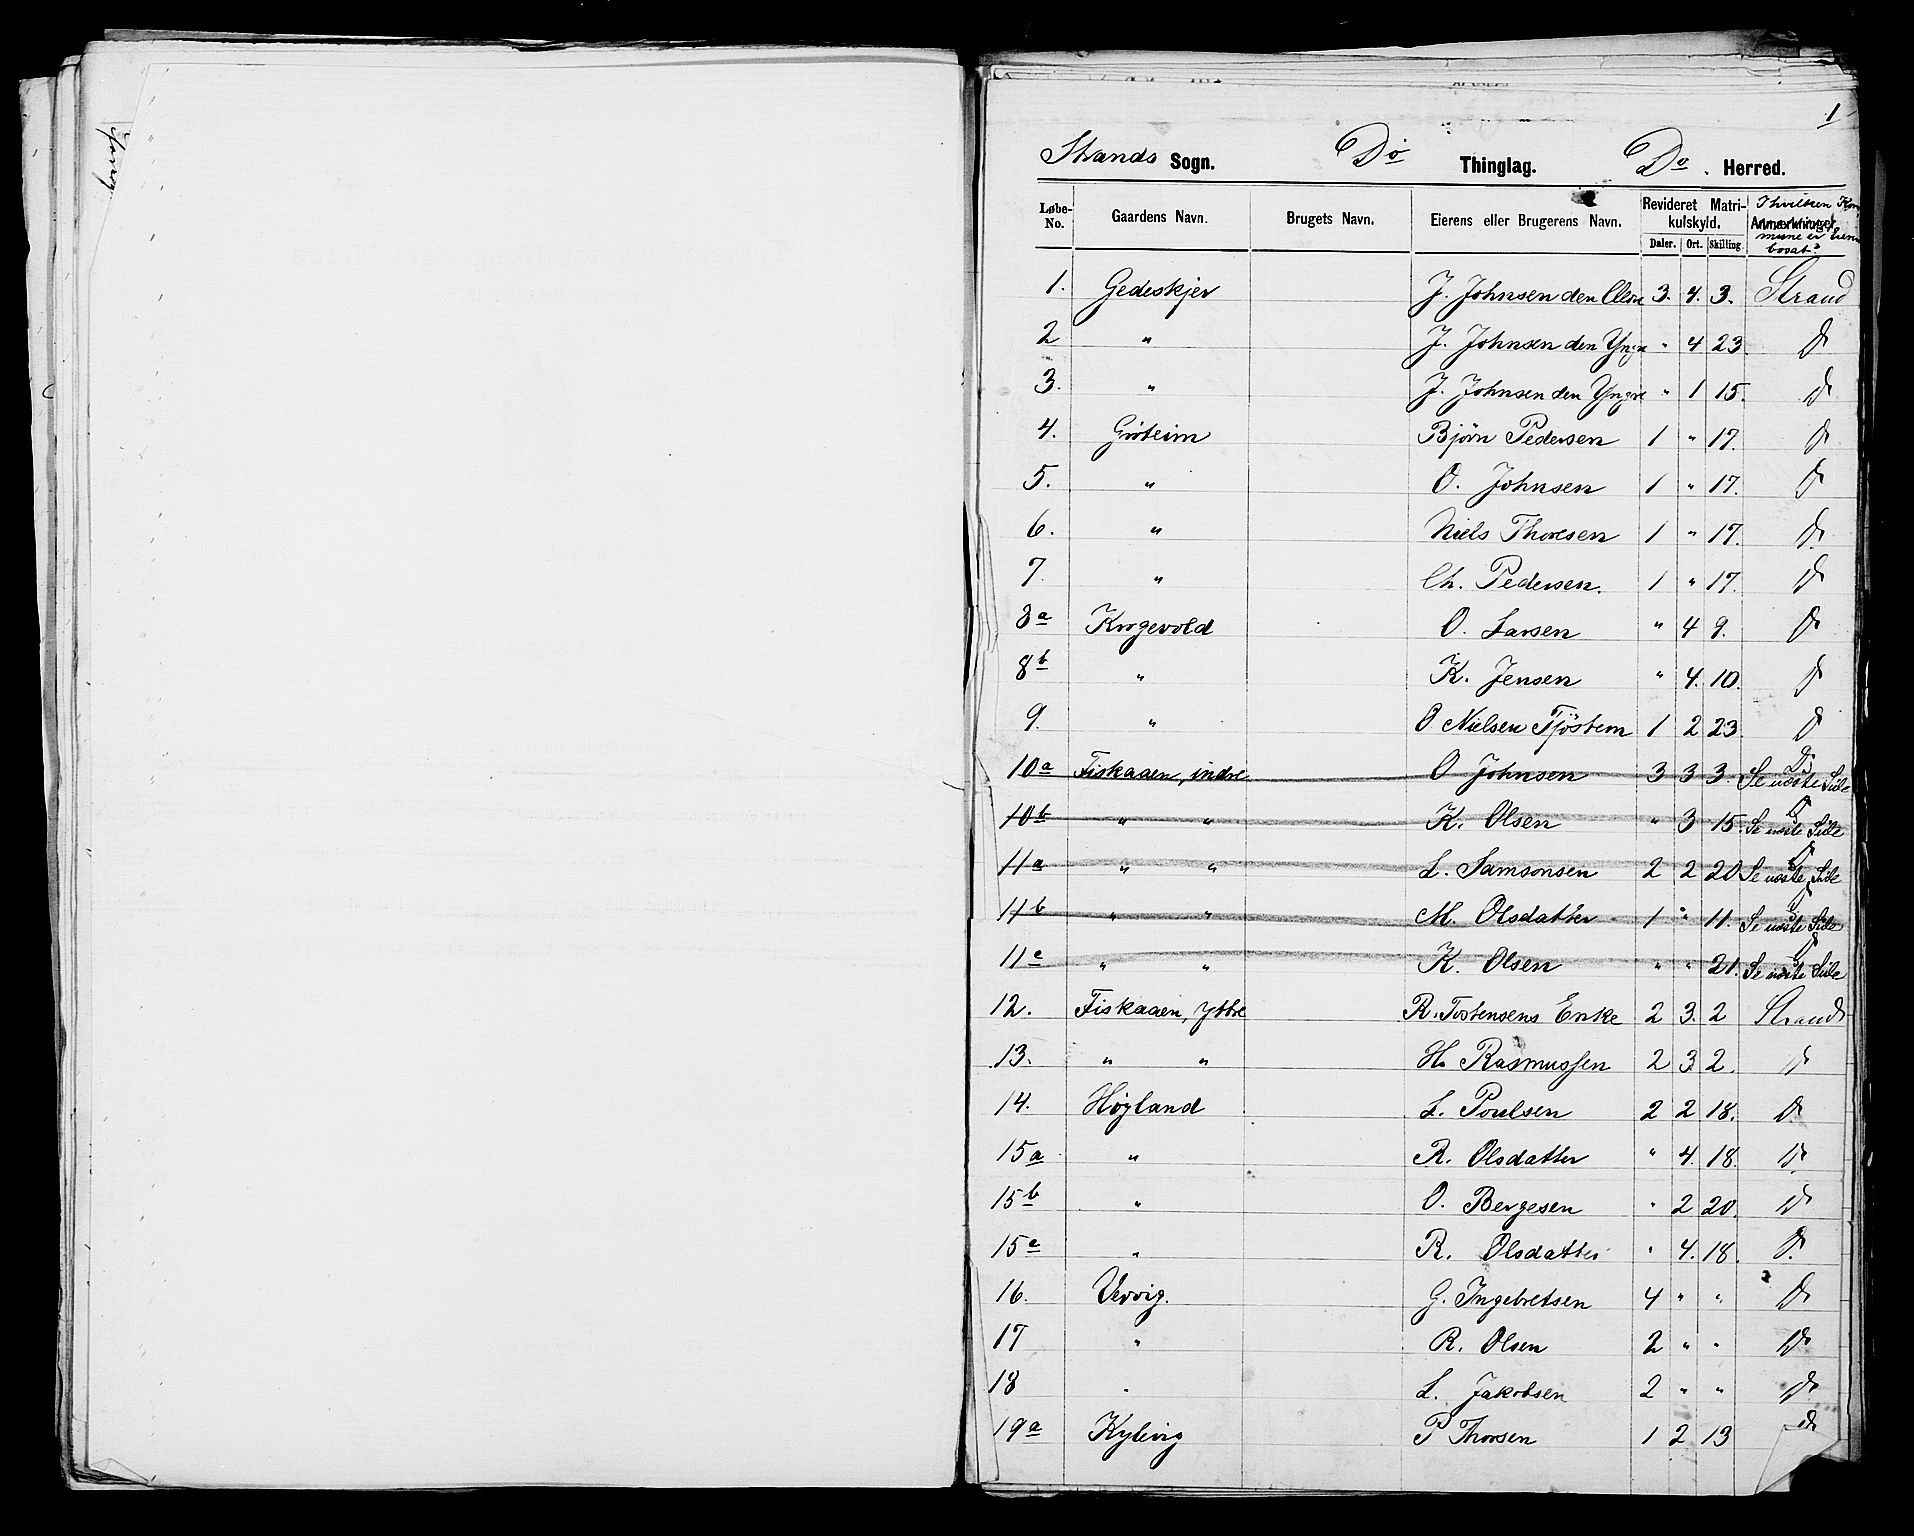 1
Strands Sogn. Do Thinglag. Do. Herred.
Løbe-No. Gaardens Navn. Brugets Navn. Eierens eller Brugerens Navn. Revideret Matrikulskyld. Daler. Ort. Skilling Anmærkninger I hvilken Kommune er Eieren bosat?
1. Gedeskjer J. Johnsen den 3. 4. 3. Strand
2 " J. Johnsen den Yngre " 4 23. Do
3. " J. Johnsen den Yngre " 1 15. Do
4. Gröteim Bjørn Pedersen 1 " 17. Do
5. " O. Johnsen 1 " 17. Do
6. " Niels Thoresen 1 " 17. Do
7. " Ch. Pedersen. 1 " 17. Do
8a Krogevold O. Larsen " 4 9. Do
8b " K. Jensen " 4. 10. Do
9. " O Nielsen Tjöstem 1 2 23. Do
10a Fiskaaen, indre O Johnsen 3 3 3. Do Se næste Side
10b " " K. Olsen " 3 15. Do Se næste Side
11a " " L. Samsonsen 2 2 20 Do Se næste Side
11b " " M. Olsdatter 1 " 11. Do Se næste Side
11c " " K. Olsen " " 21. Do Se næste Side
12. Fiskaaen, Yttre R. Tostensens Enke 2 3. 2 Strand
13. " " H. Rasmussen 2 3 2. Do
14. Høyland L. Poulsen 2 2 18. Do
15a " R. Olsdatter " 4. 18. Do
15b " O. Bergesen " 2 20. Do
15c " R. Olsdatter " 4. 18. Do
16. Vervig. G. Ingebretsen 4 " " Do
17 " R. Olsen 2 " " Do
18 " L. Jakobsen 2 " " Do
19a Kylevig P Thorsen 1 2 13 Do